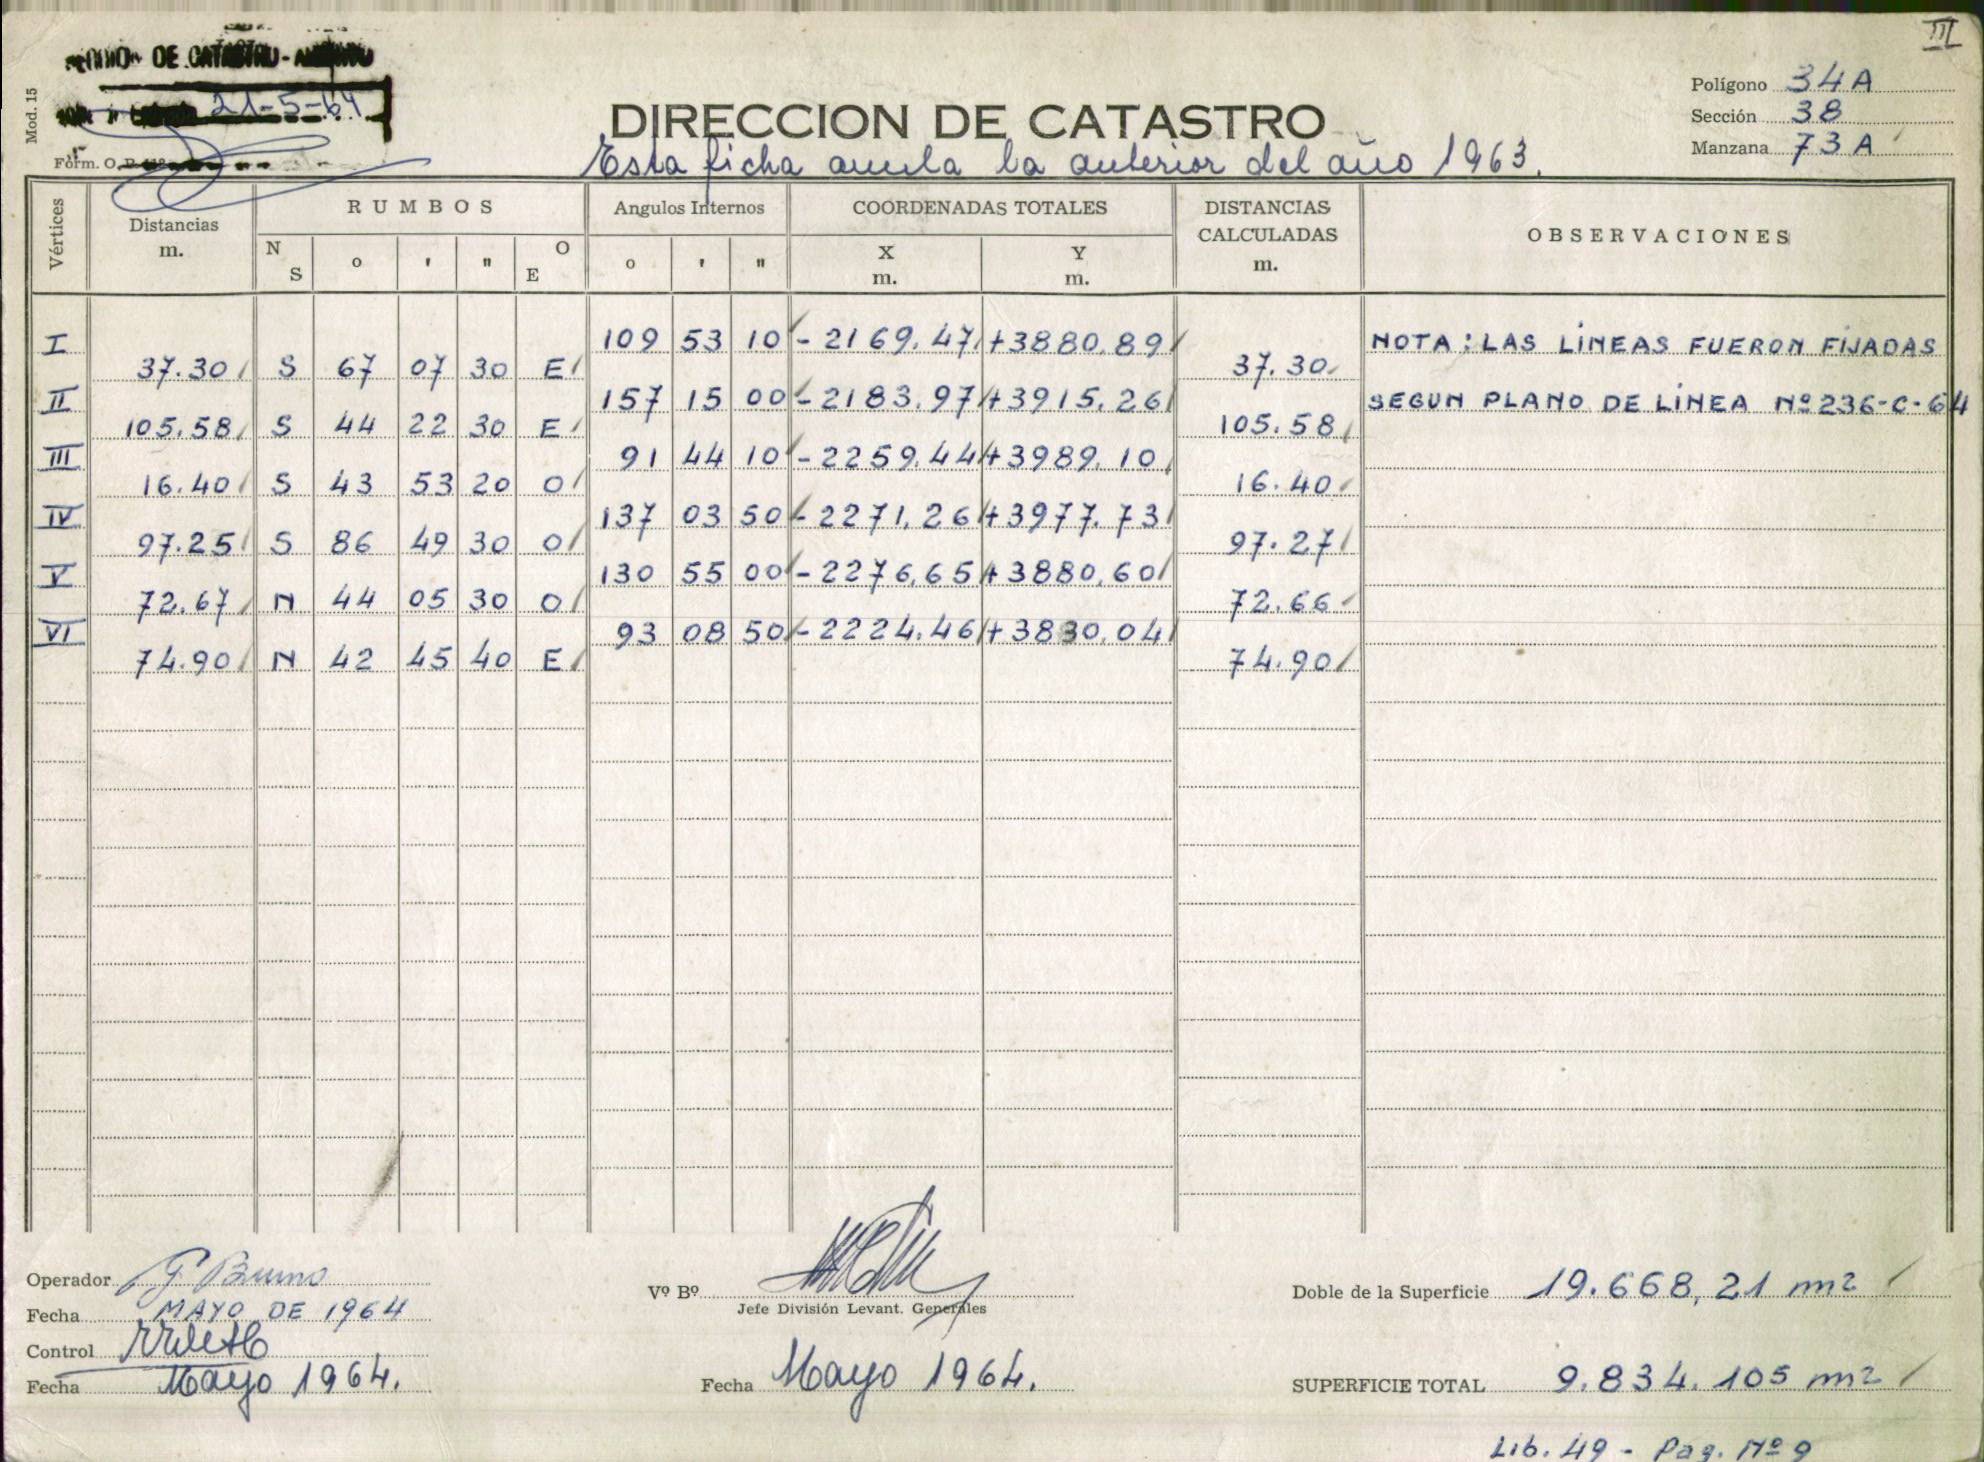 III
DE CATASTRO -
21-5-64
Mod. 15
Form. O.
DIRECCION DE CATASTRO
Esta ficha anula la anterior del año 1963.
Polígono 34A
Sección 38
Manzana 73A
Vértices
Distancias m.
RUMBOS
N S ° ' " O E
Angulos Internos
° ' "
COORDENADAS TOTALES
X m. Y m.
DISTANCIAS CALCULADAS m.
OBSERVACIONES
I 109 53 10 -2169.47 +3880.89 NOTA: LAS LÍNEAS FUERON FIJADAS
37.30 S 67 07 30 E 37.30
II 157 15 00 -2183.97 +3915.26 SEGUN PLANO DE LÍNEA Nº 236-C-64
105.58 S 44 22 30 E 105.58
III 91 44 10 -2259.44 +3989.10
16.40 S 43 53 20 O 16.40
IV 137 03 50 -2271.26 +3977.73
97.25 S 86 49 30 O 97.27
V 130 55 00 -2276.65 +3880.60
72.67 N 44 05 30 O 72.66
VI 93 08 50 -2224.46 +3830.04
74.90 N 42 45 40 E 74.90
Operador G. Bruno
Fecha MAYO DE 1964
Control
Fecha Mayo 1964.
Vº Bº
Jefe División Levant. Generales
Fecha Mayo 1964.
Doble de la Superficie 19.668,21 m2
SUPERFICIE TOTAL 9.834.105 m2
Lib. 49 - Pag. Nº 9